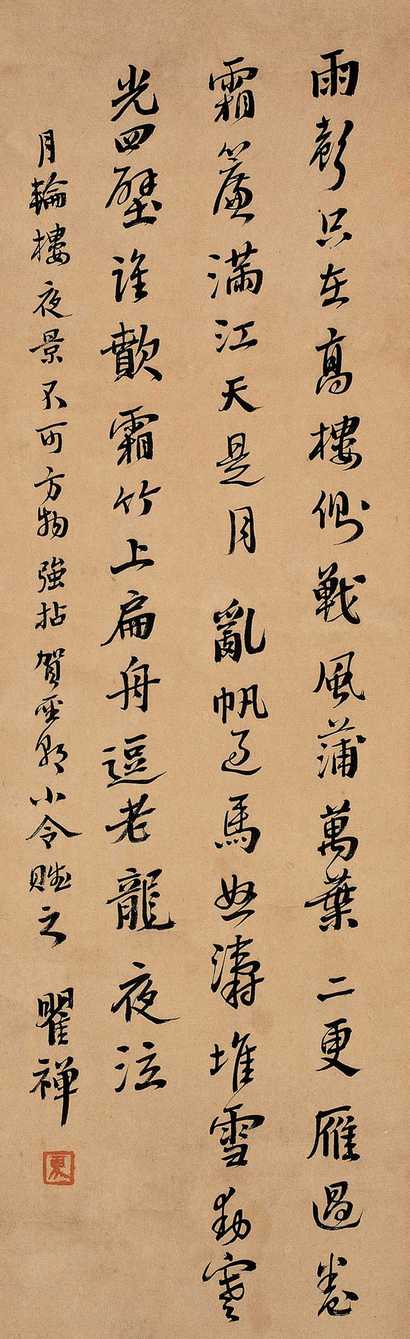 雨聲只在高樓側戰風蒲萬葉二更雁過卷
霜簾滿江天是月亂帆走馬怒濤堆雪動寒
光四壁誰歕霜竹上扁舟逗老龍夜泣
月輪樓夜景不可方物強拈賀聖朝小令賦之 瞿禪